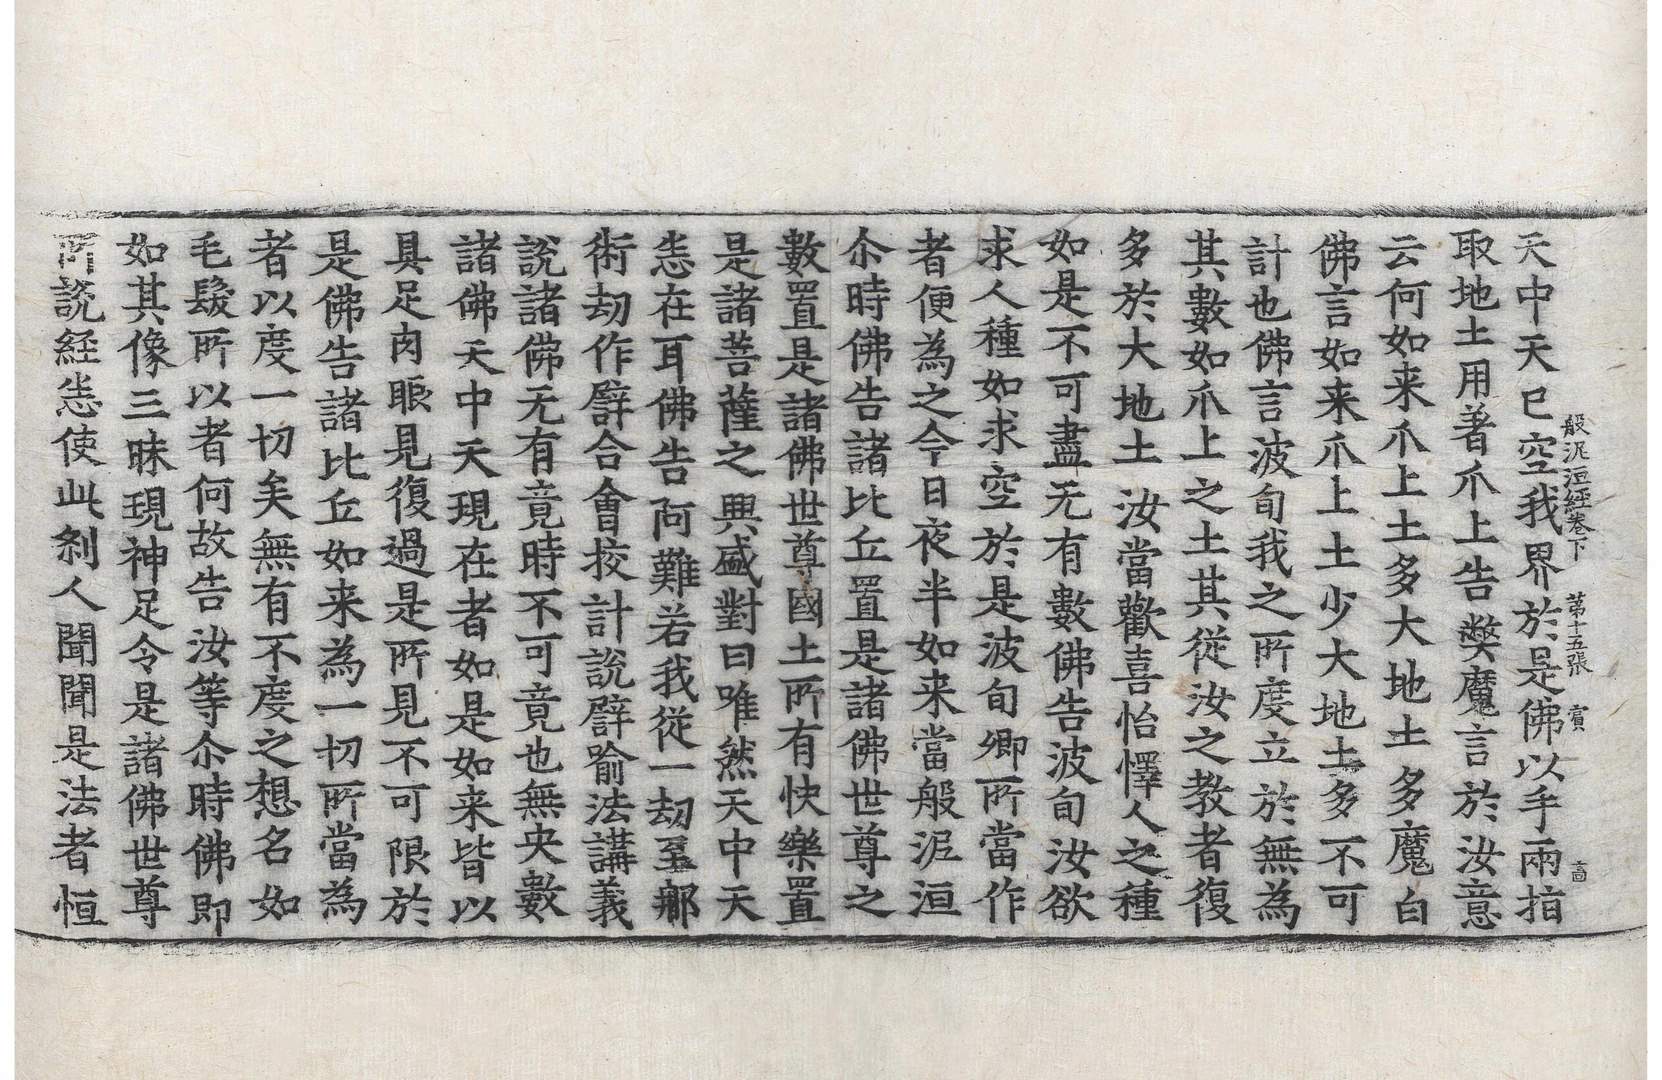 般泥洹經卷下 第十五張 賓
天中天巳空我界於是佛以手兩指
取地土用著爪上告獘魔言於汝意
云何如来爪上土多大地土多魔白
佛言如来爪上土少大地土多不可
計也佛言波旬我之所度立於無為
其數如爪上之土其從汝之教者復
多於大地土 汝當歡喜怡懌人之種
如是不可盡无有數佛告波旬汝欲
求人種如求空於是波旬卿所當作
者便為之今日夜半如来當般泥洹
尒時佛告諸比丘置是諸佛世尊之
數置是諸佛世尊國土所有快樂置
是諸菩薩之興盛對曰唯然天中天
恙在耳佛告阿難若我從一劫至那
術劫作譬合會挍計說譬喻法講義
說諸佛无有竟時不可竟也無央數
諸佛天中天現在者如是如来皆以
具足肉眼見復過是所見不可限於
是佛告諸比丘如来為一切所當為
者以度一切矣無有不度之想名如
毛髮所以者何故告汝等尒時佛即
如其像三昧現神足令是諸佛世尊
所說經恙使此剎人聞聞是法者恒